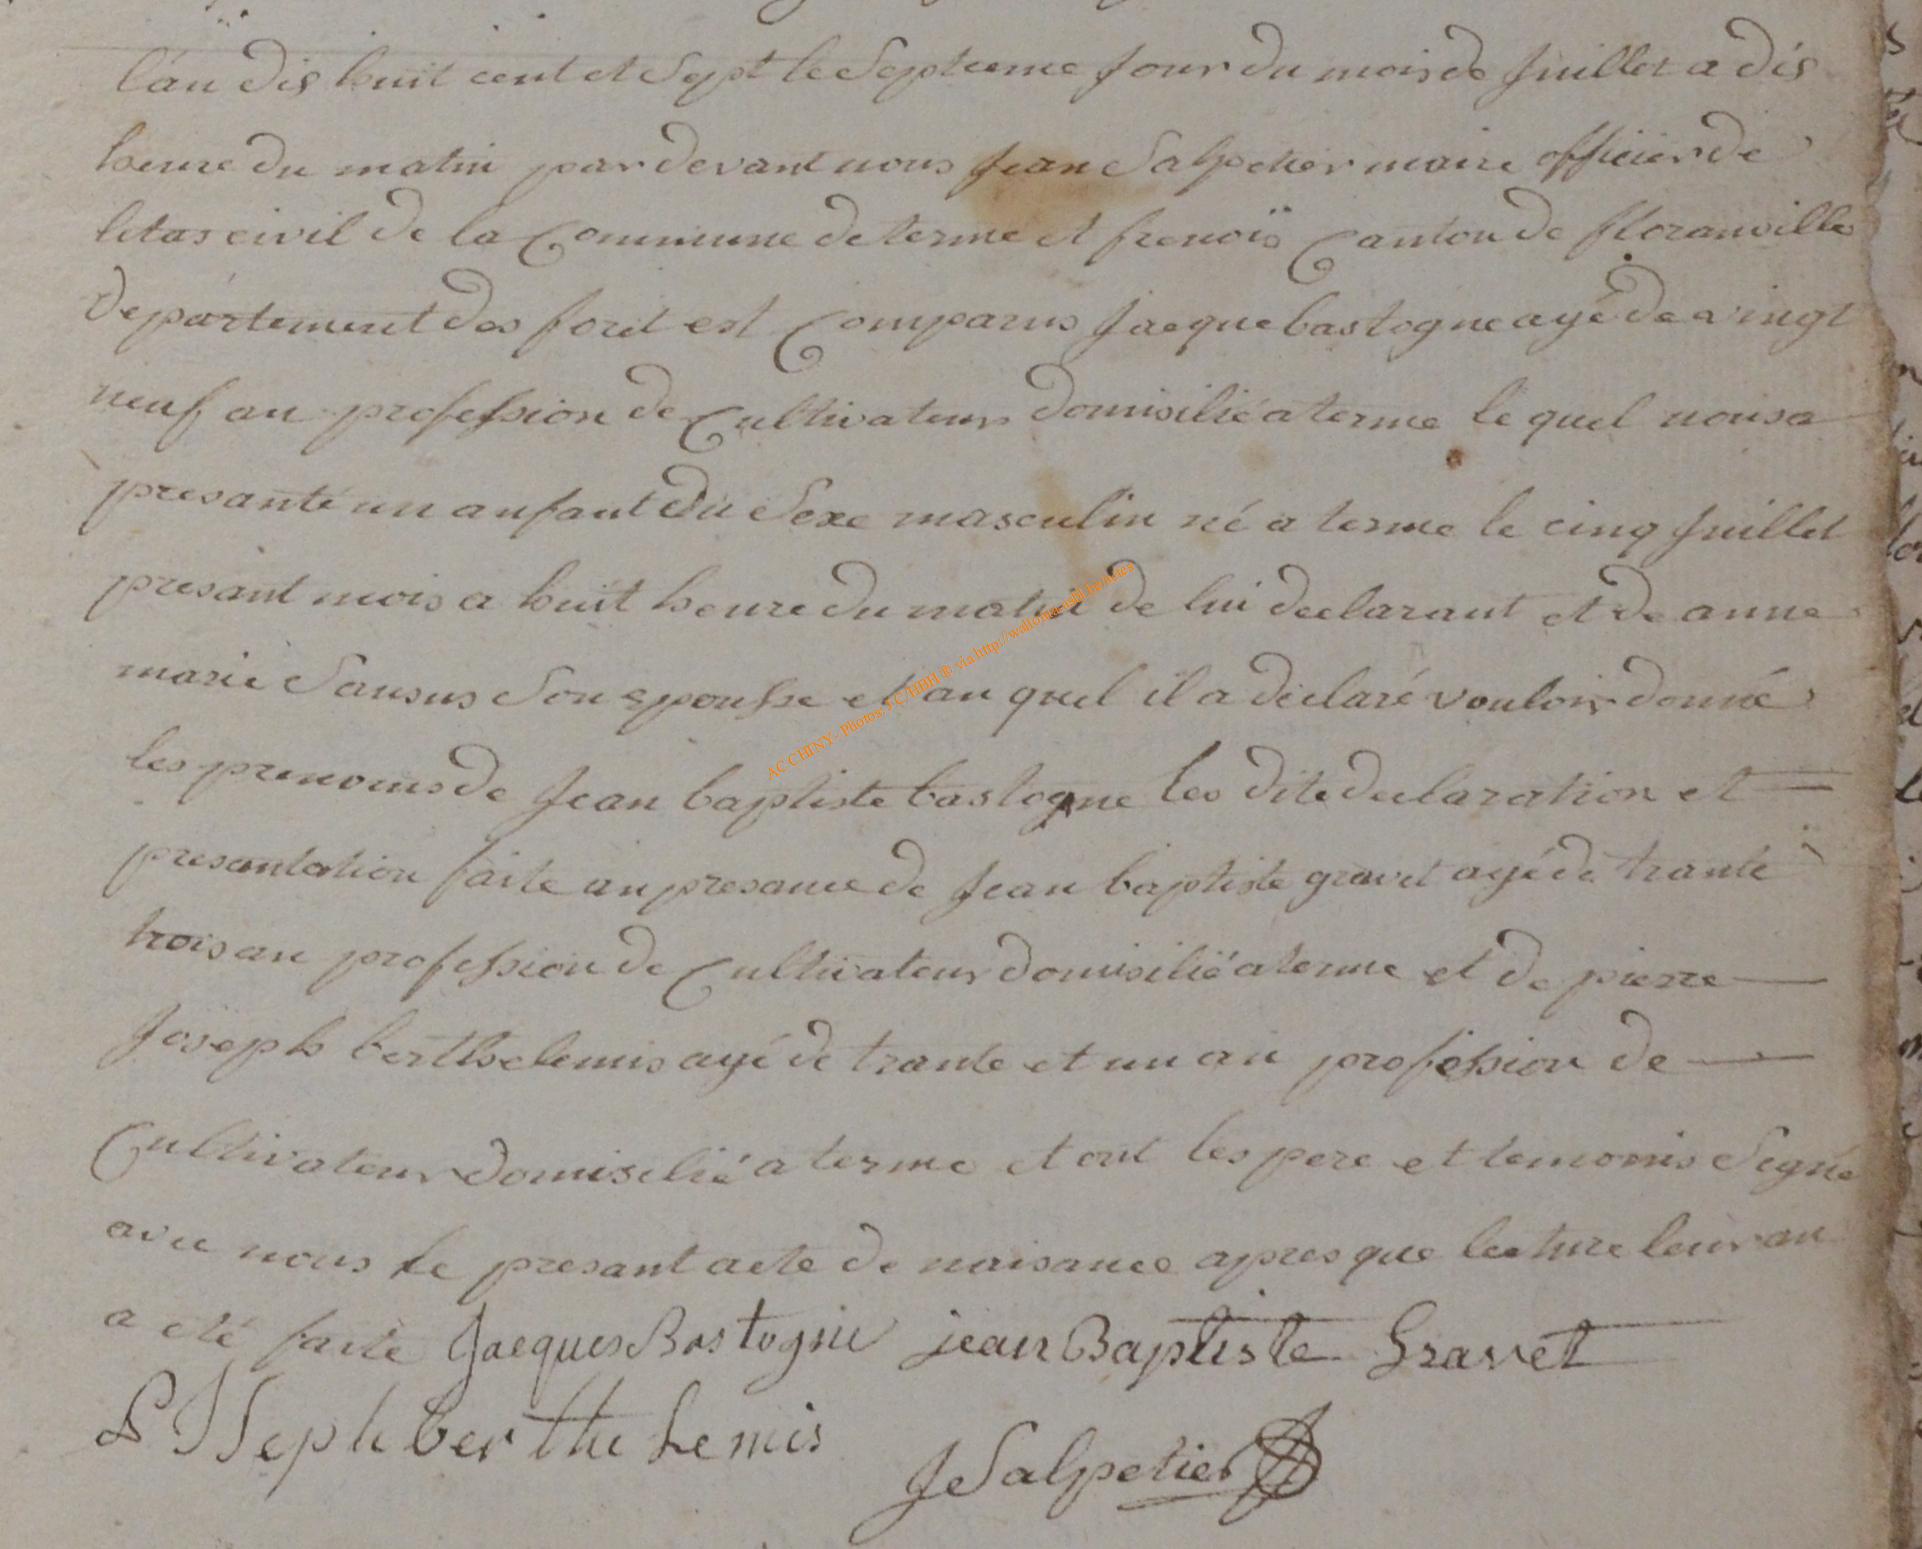 l'an dis huit cent et Sept le Septieme Jour du mois de Juillet a dis
heure du matin par devant nous Jean Salpetier maire officier de
letas civil de la Commune de terme et frenoïs Canton de floranville
departement des foret est Comparus Jacque bastogne ayé de vingt
neuf an profession de Cultivateur domisilié a terme le quel nous a
presanté un anfant du Sexe masculin né a terme le cinq Juillet
presant mois a huit heure du matin de lui declarant et de anne
marie Sausus Son epousse et au quel il a déclaré vouloir donné
les prenoms de Jean baptiste bastogne les dite declaration et
presantation faite an presance de Jean baptiste gravet ayé de trante
trois an profession de Cultivateur domisilié a terme et de pierre
Joseph berthelemis ayé de trante et un an profession de
Cultivateur domisilié a terme et ont les pere et temomis Segné
avec nous le presant acte de naisance apres que lecture leur an
a été faite Jacques Bastogne jean Baptiste Gravet
P JSeph berthelemis JSalpetier
AC CHINY- Photos JC HBH ® via http://wallonia-asbl.be/